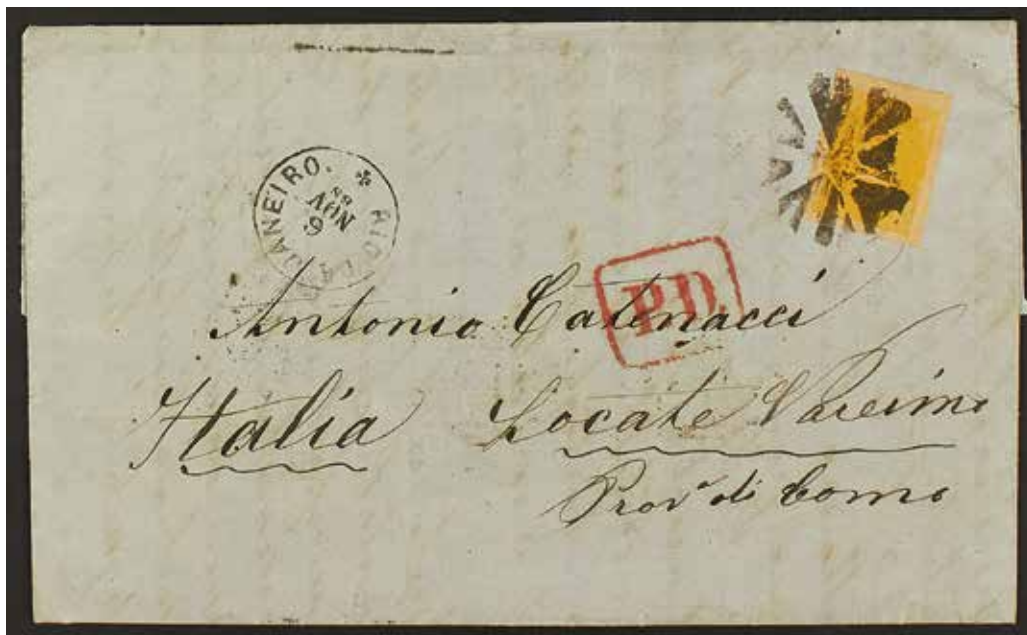 RIO D JANEIRO.
NOV
P.D.
Antonio Catenacci
Italia Locate
Prov.ª di Como